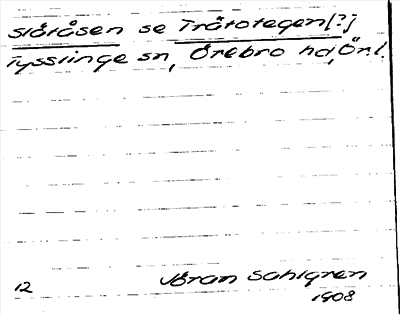 Slåtåsen se Tråtotegen[?]
Tysslinge sn, Örebro hd, Ör.l.
12
Jöran Sahlgren
1908